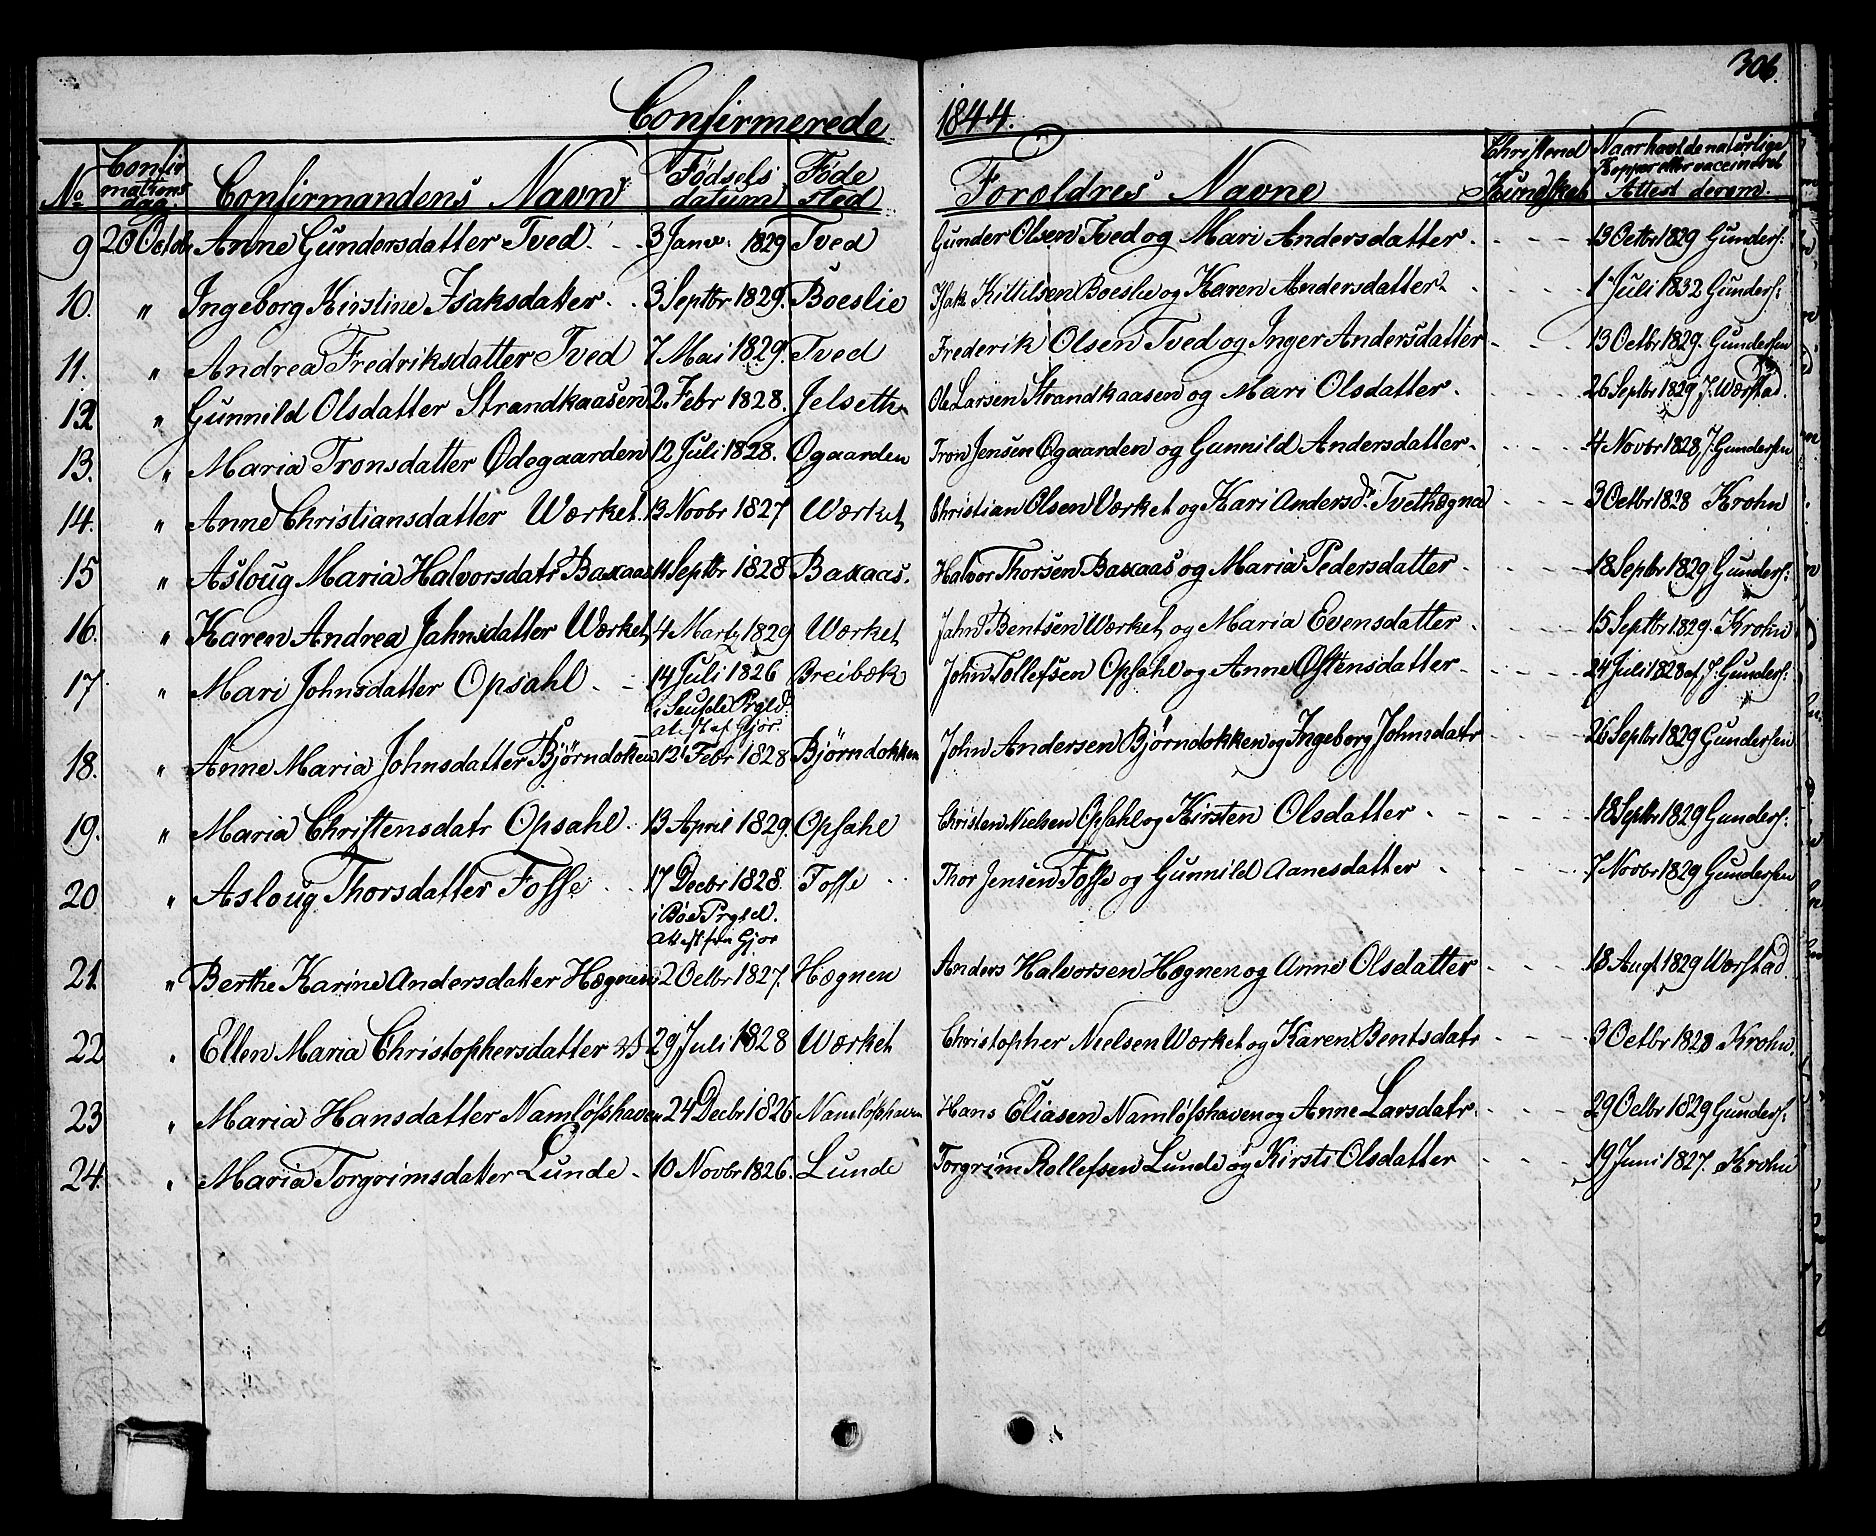 306.
Confirmerede 1844.
No Confirmations dag Confirmandens Navn Fødsels datum Føde sted Foroldres Navne Christend Kundskab Naar havt de naturlige Kopper eller vaccineret Attest derom
9 20 Octob Anne Gundersdatter Tved. 3 Janv. 1829 Tved Gunder Olsen Tved og Mari Andersdatter. 13 Octbr 1829 Gunders:
10. " Ingeborg Kirstine Isaksdatter. 3 Septbr 1829. Boeslie Isak Kittilsen Boeslie og Karen Andersdatter 1 Juli 1832 Gunders:
11. " Andrea Fredriksdatter Tved 7 Mai 1829. Tved Frederik Olsen Tved og Inger Andersdatter 13 Octbr 1829. Gundersen
12 " Gunnild Olsdatter Strandkaasen 2. Febr 1828. Jelseth Ole Larsen Strandkaasen og Mari Olsdatter. 26 Septbr 1829 J. Wærstad.
13. " Maria Tronsdatter Ødegaarden 12 Juli 1828. Øgaarden Tron Jensen Øgaarden og Gunnild Andersdatter 4 Novbr 1828, J. Gundersen
14. " Anne Christiansdatter Værket. 13 Novbr 1827 Værket Christian Olsen Værket og Kari Andersdr. Tvethægna 3 Octbr 1828 Krohn
15 " Asloug Maria Halvorsdatr Baxaas 11 Septbr 1828 Baxaas. Halvor Thorsen Baxaas og Maria Pedersdatter 18 Septbr 1829 Gunders:
16. " Karen Andrea Jahnsdatter Værket 4 Marts 1829 Værket Jahn Bentsen Værket og Maria Evensdatter 15 Septbr 1829. Krohn
17 " Mari Johnsdatter Opsahl 14 Juli 1826 Breibæk John Tollefsen Opsahl og Anne Østensdatter 24 Juli 1828 af J. Gunders:
i Seufde Prgld.
attest af Gjør.
18. " Anne Maria Johnsdatter Bjørndoken 12 Febr 1828 Bjørndokken John Andersen Bjørndokken og Ingeborg Johnsdatr 26 Septbr 1829 Gundersen
19. " Maria Christensdatr Opsahl 13 April 1829 Opsahl Christen Nielsen Opsahl og Kirsten Olsdatter 18 Septbr 1829 Gunders:
20. " Asloug Thorsdatter Fosse 17 Decbr 1828. Fosse Thor Jensen Fosse og Gunnild Aanesdatter 7 Novbr 1829 Gundersen
i Bøe Prgld.
attest fra Gjør
21. " Berthe Karine Andersdatter Hægnen 2 Octbr 1827. Hægnen Anders Halvorsen Hægnen og Anne Olsdatter 18 Augt 1829 Wærstad
22 " Ellen Maria Christophersdatter 29 Juli 1828 Værket Christopher Nielsen Værket og Karen Bentsdatr 3 Octbr 1828 Krohn.
23 " Maria Hansdatter Namløsshaven 24 Decbr 1826 Namløsshaven Hans Eliasen Namløsshaven og Anne Larsdatr 29 Octbr 1829 Gunders:
24. " Maria Torgrimsdatter Lunde 10 Novbr 1826. Lunde Torgrim Rollefsen Lunde og Kirsti Olsdatter 19 Juni 1827. Krohn